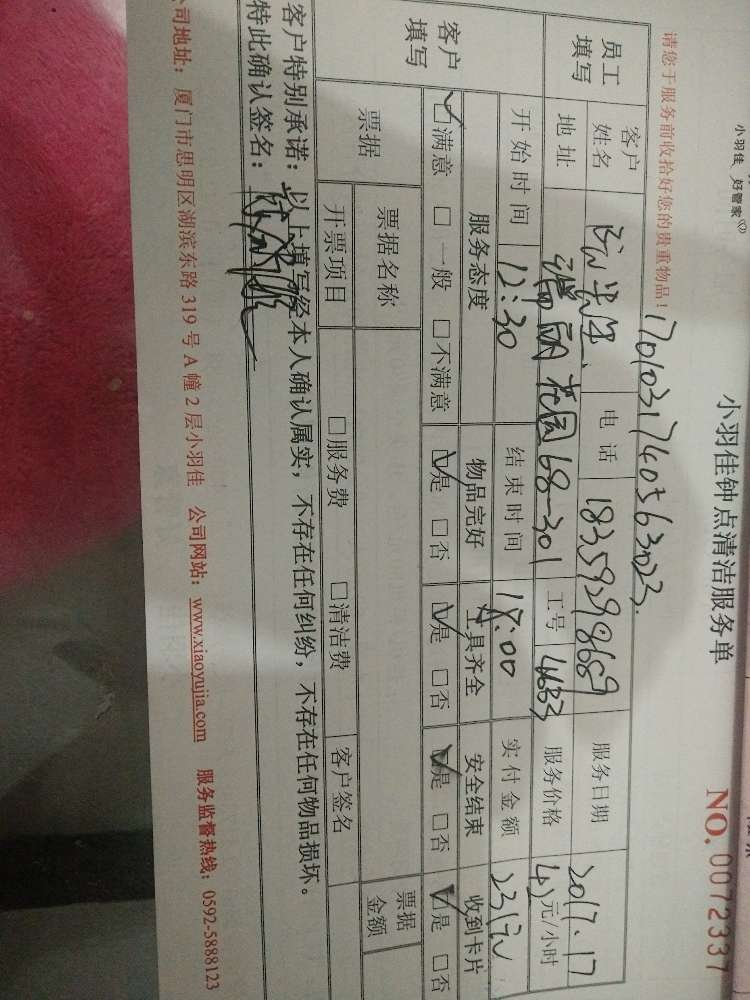 小羽佳 好管家
小羽佳钟点清洁服务单
NO. 0072337
请您于服务前收拾好您的贵重物品！
1701031740563023
员工填写
客户姓名
电话 18359298689
服务日期 2017.17
地址 瑞丽花园68-301
工号 4683
服务价格 42元/小时
开始时间 12:30
结束时间 18:00
实付金额 231元
客户填写
服务态度 物品完好 工具齐全 安全结束 收到卡片
☑满意 □一般 □不满意 ☑是 □否 ☑是 □否 ☑是 □否 ☑是 □否
票据
票据名称
票据金额
开票项目 □服务费 □清洁费 客户签名
客户特别承诺：以上填写经本人确认属实，不存在任何纠纷，不存在任何物品损坏。
特此确认签名：
公司地址：厦门市思明区湖滨东路 319 号 A 幢 2 层小羽佳 公司网站：www.xiaoyujia.com 服务监督热线：0592-5888123